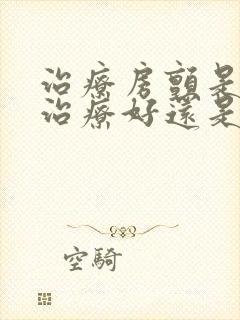 治療房顫是
治療好還是
空騎